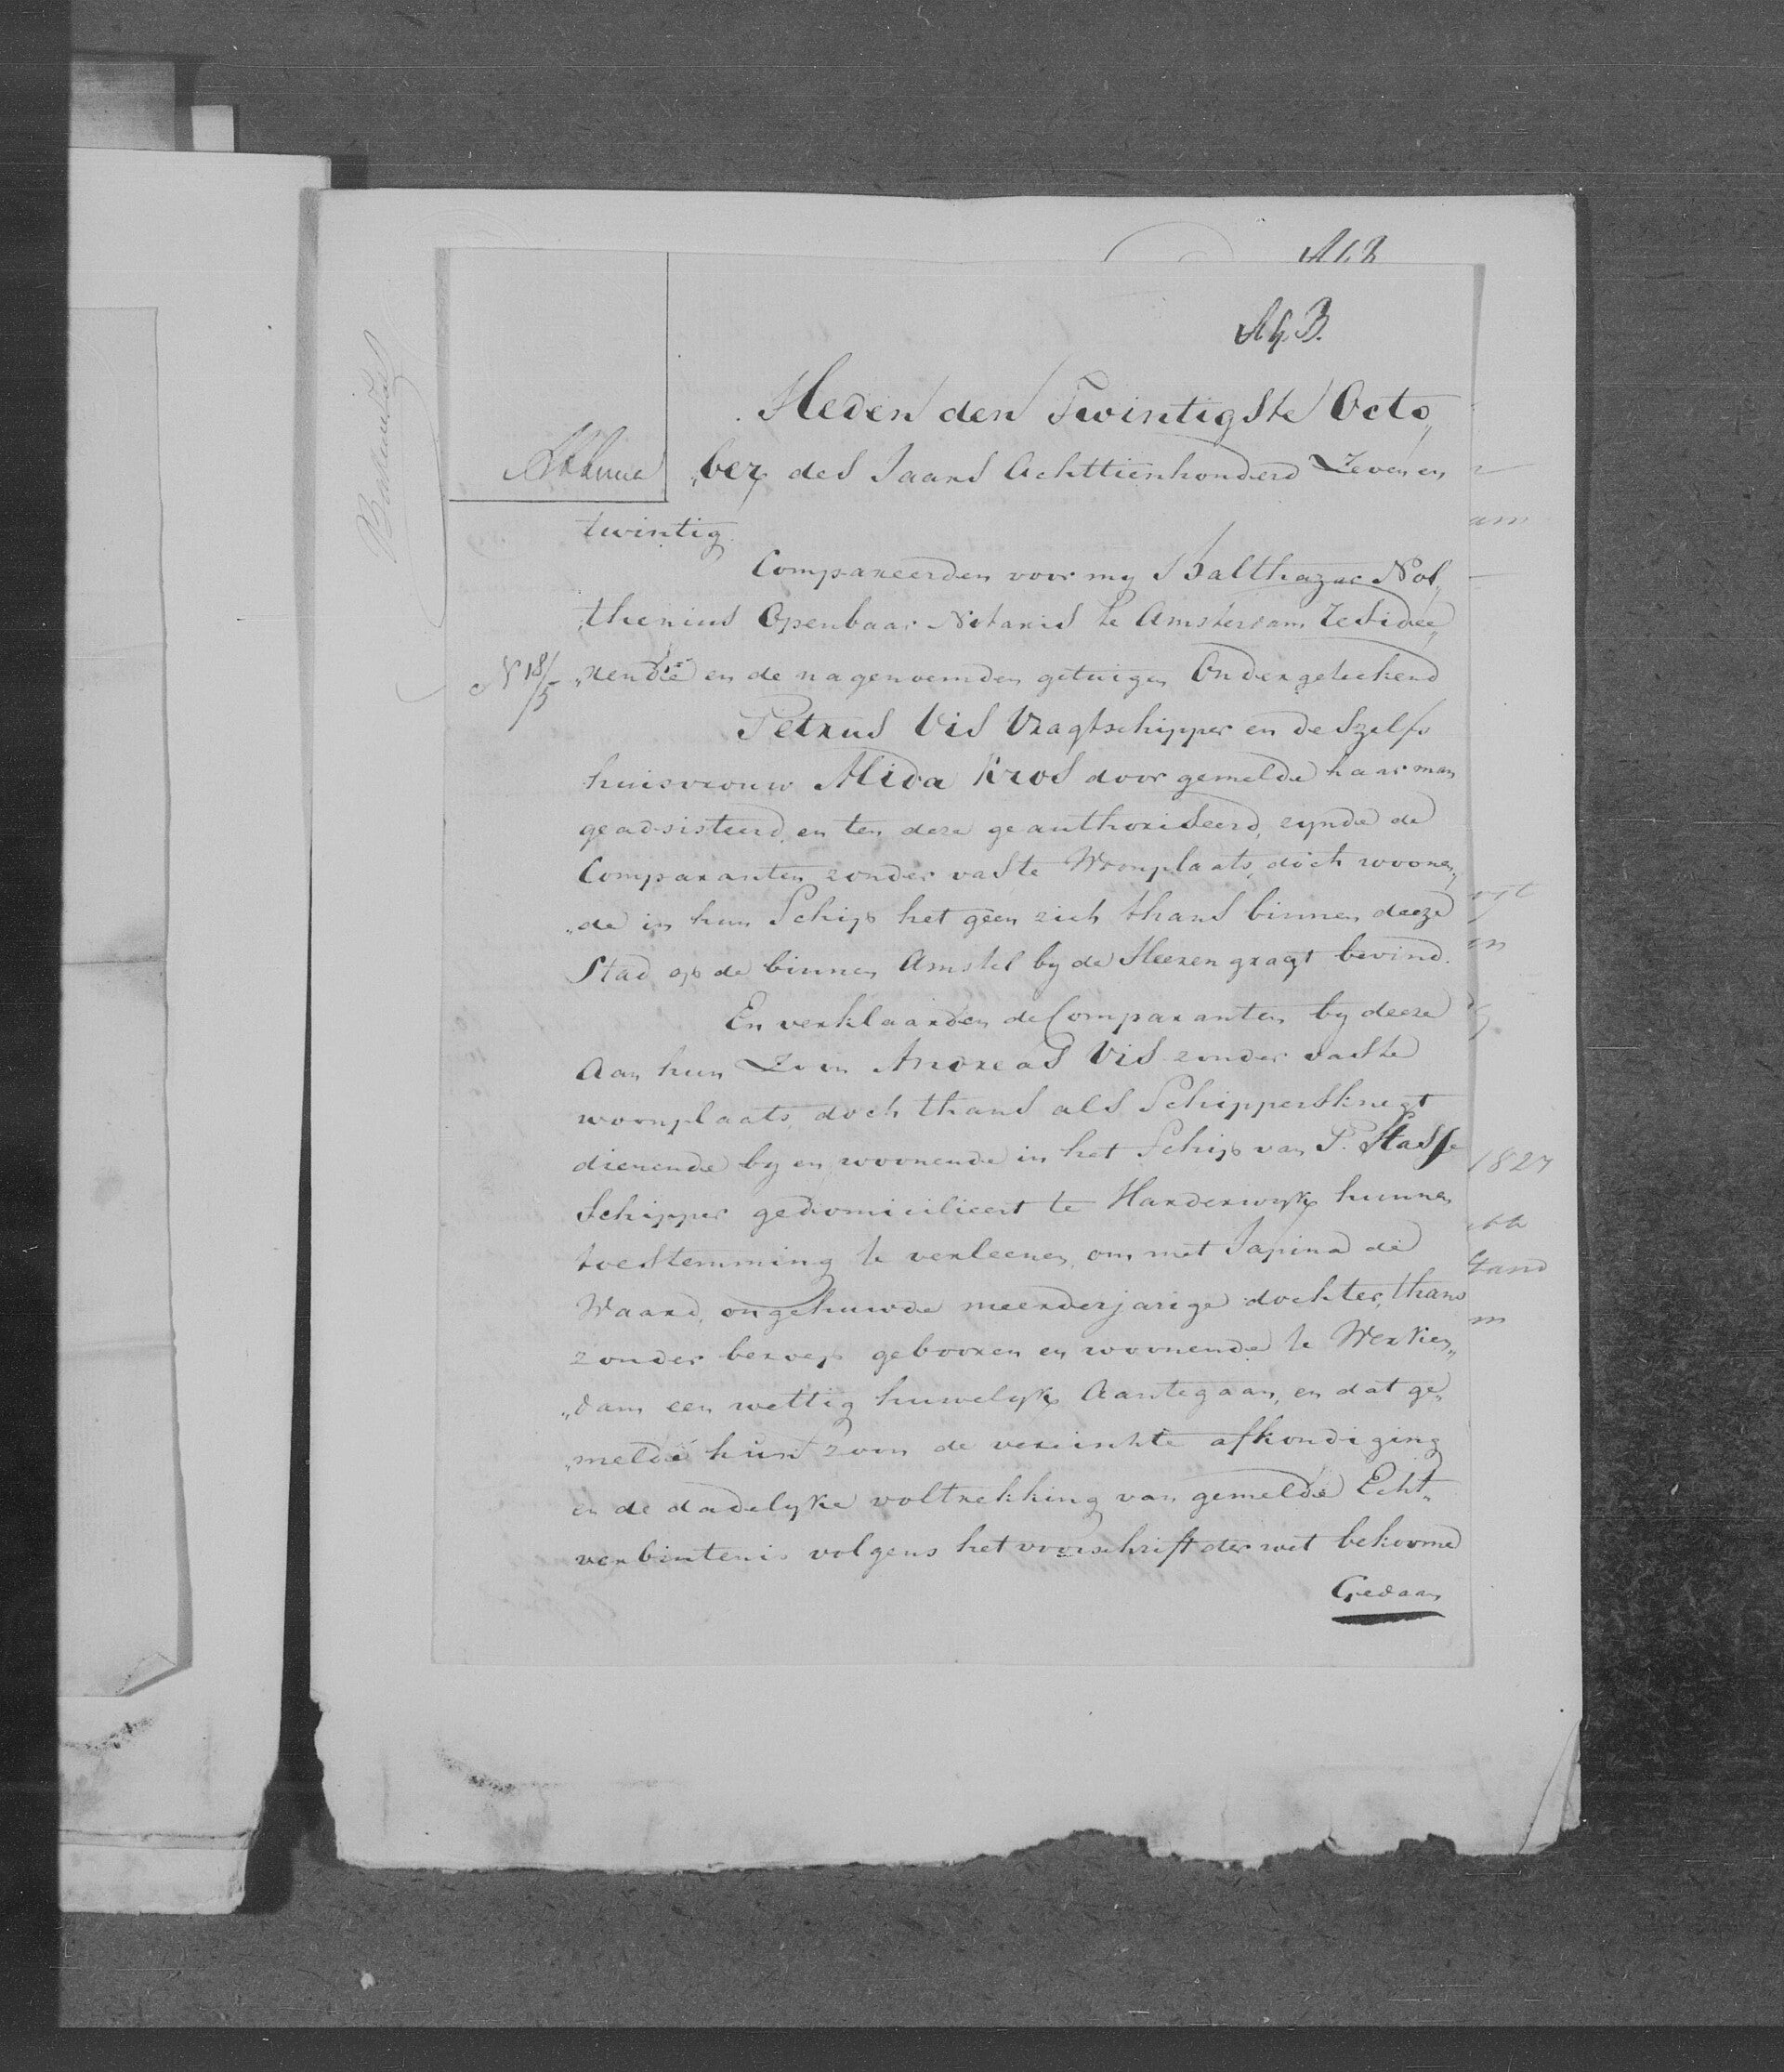 Heden den Twintigste Octo„
„ber des Jaars Achttienhonderd Zeven en
twintig.
Compareerden voor my Balthazar Nol„
„thenius Openbaar Notaris te Amsterdam Residee„
N 18/5
„rende en de nagenoemden getuigen Ondergeteekend
Petrus Vis Vragtschipper en deszelfs
huisvrouw Alida Kros door gemelde haar man
geadsisteerd en ten deze geauthoriseerd, zynde de
Comparanten zonder vaste Woonplaats, doch woonen„
„de in hun Schip het geen zich thans binnen deeze
Stad op de binnen Amstel by de Heeren gragt bevind.
En verklaarden de Comparanten by deeze
Aan hun Zoon Andreas Vis zonder vaste
woonplaats, doch thans als Schippersknegt
dienende by en woonende in het Schip van P. Stasse
Schipper gedomicilieert te Harderwyk hunne
toestemming te verleenen, om met Japina de
Waard, ongehuwde meerderjarige dochter, thans
zonder beroep gebooren en woonende te Werken„
„dam een wettig huwelyk Aantegaan, en dat ge„
„melde hun zoon de vereischte afkondiging
en de dadelyke voltrekking van gemelde Echt„
verbintenis volgens het voorschrift der wet bekoome
Gedaan
1827